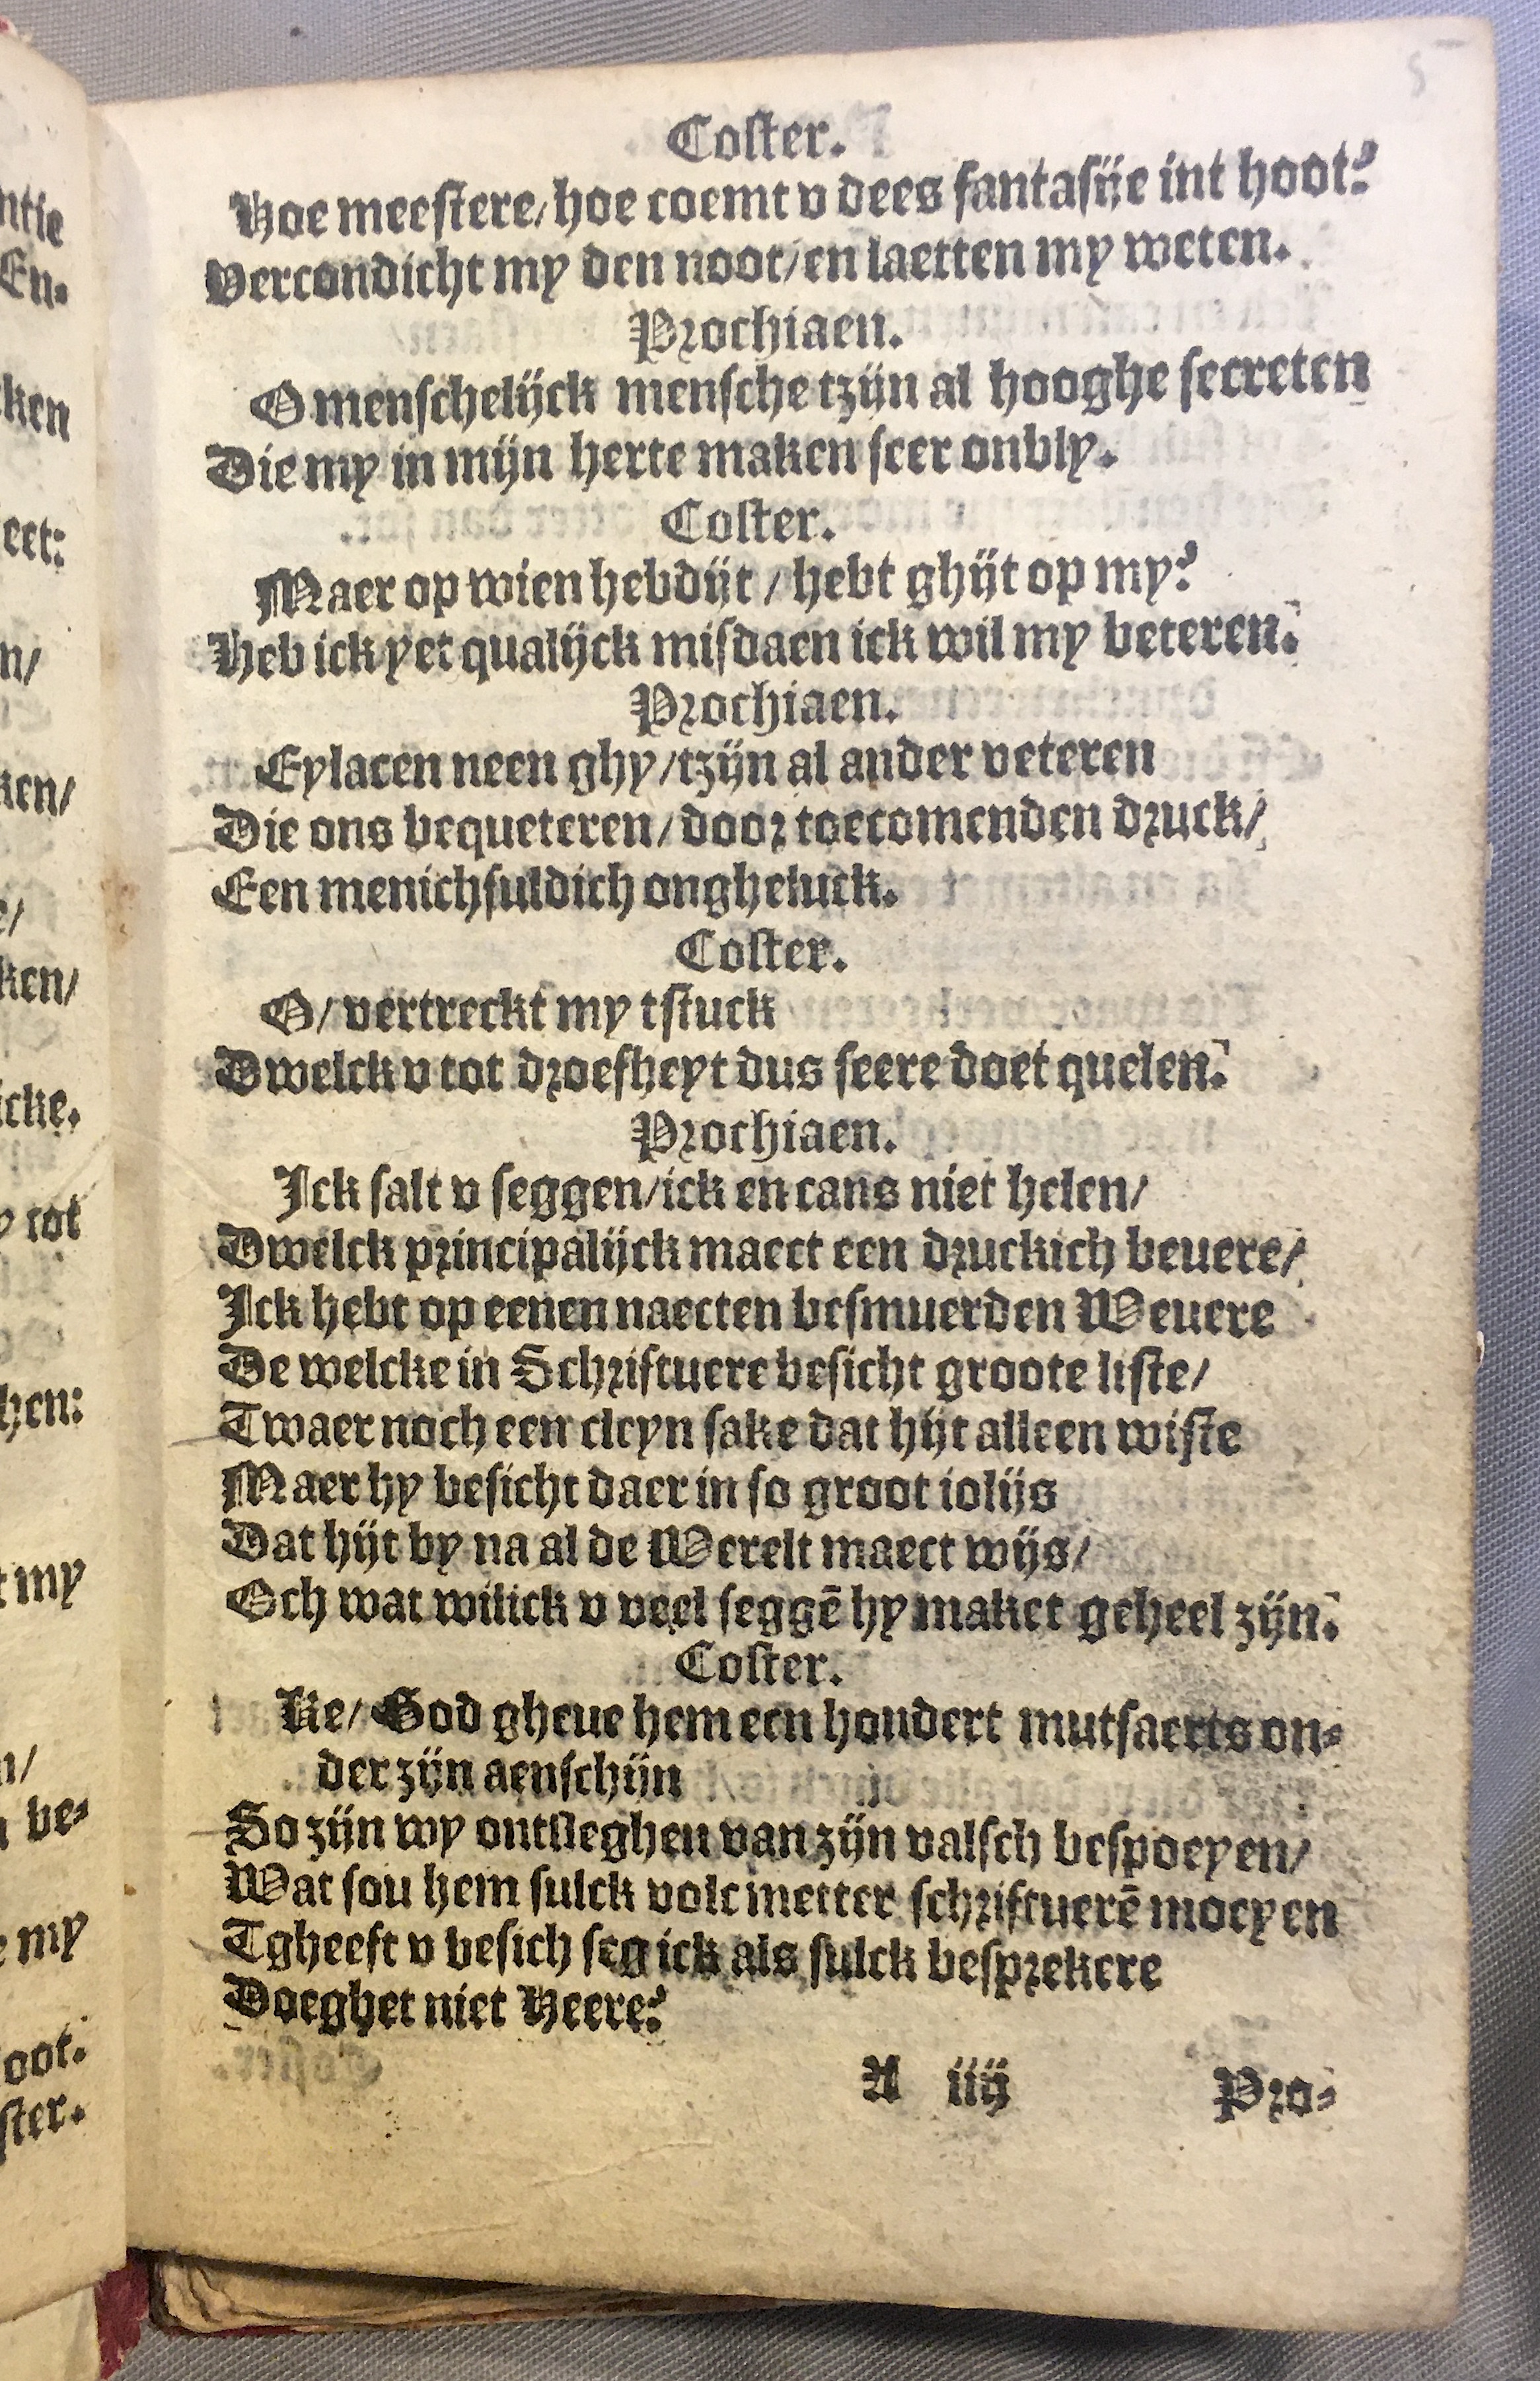 Coster.
Hoe meestere/hoe coemt v dees fantasije int hoot?
Vercondicht my den noot/en laetten my weten.
Prochiaen.
O menschelijck mensche tzijn al hooghe secreten
Die my in mijn herte maken seer onbly.
Coster.
Maer op wien hebdijt / hebt ghijt op my?
Heb ick yet qualijck misdaen ick wil my beteren.
Prochiaen.
Eylacen neen ghy/tzijn al ander veteren
Die ons bequeteren/door toecomenden druck/
Een menichfuldich ongheluck.
Coster.
O/ vertreckt my tstuck
Dwelck v tot droefheyt dus seere doet quelen.
Prochiaen.
Ick salt v seggen/ick en cans niet helen/
Dwelck principalijck maect een druckich beuere/
Ick hebt op eenen naecten besmuerden Weuere
De welcke in Schriftuere besicht groote liste/
Twaer noch een cleyn sake dat hijt alleen wiste
Maer hy besicht daer in so groot iolijs
Dat hijt by na al de Werelt maect wijs/
Och wat wilick v veel seggē hy maket geheel zijn.
Coster.
Ke/ God gheue hem een hondert mutsaerts on-
der zijn aenschijn
So zijn wy ontslegheu van zijn valsch bespoeyen/
Wat sou hem sulck volc metter schriftuerē moeyen
Tgheeft v besich seg ick als sulck besprekere
Doeghet niet Heere?
A iiij
Pro-
5
ntie
En.
ken
eet:
n/
ken/
e/
ken/
icke.
y tot
hen:
t my
n/
n be-
e my
oot.
ster.